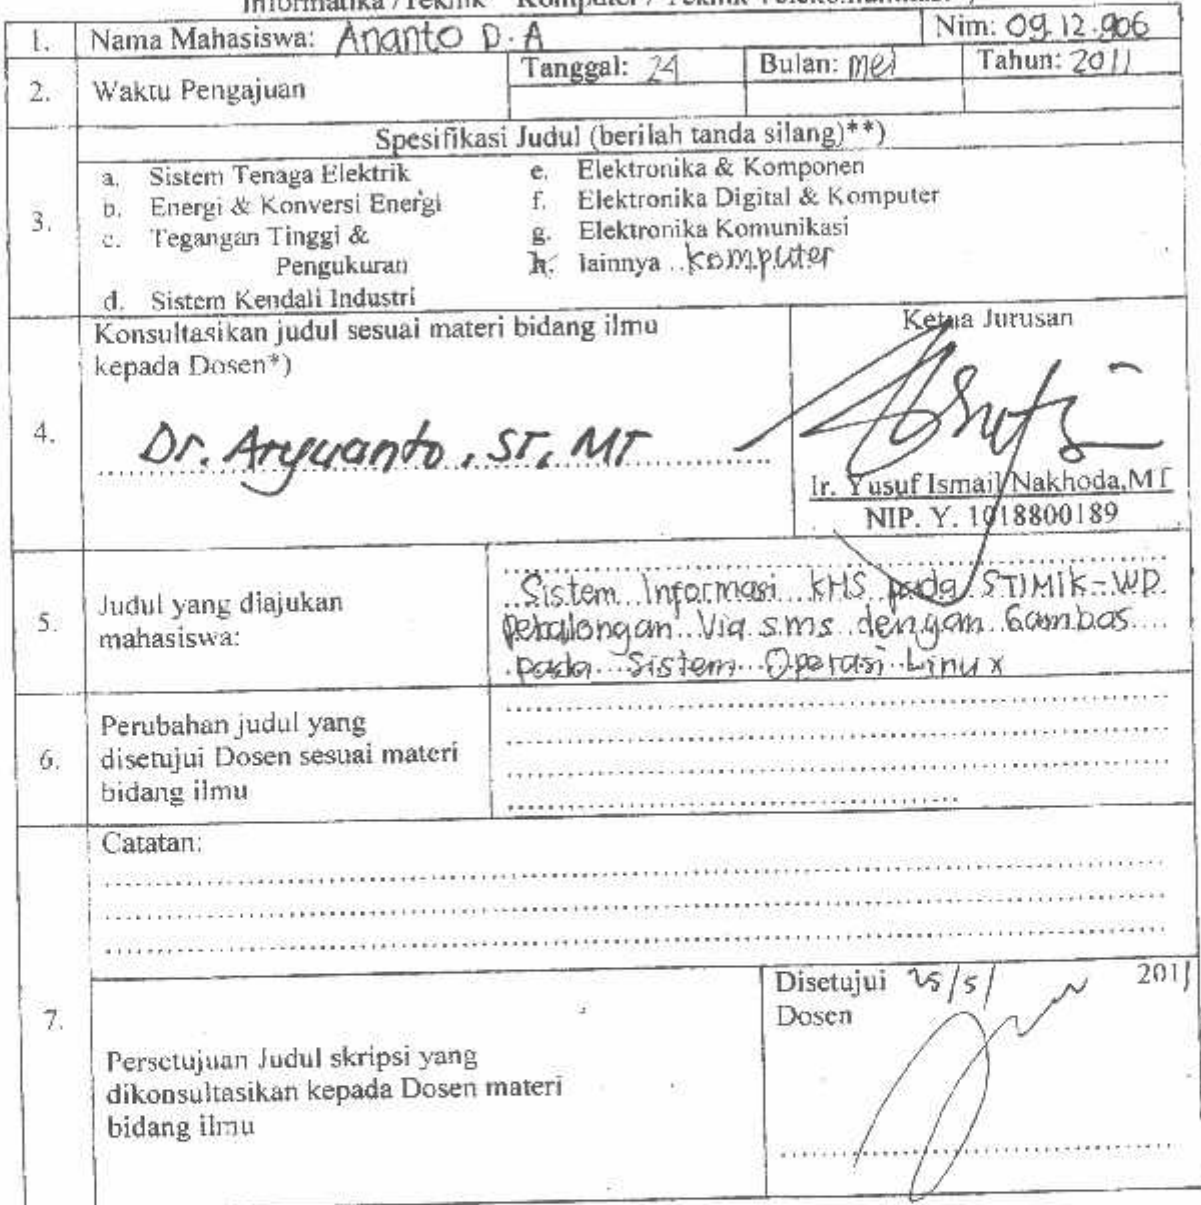 Informatika / Teknik Komputer / Teknik Telekomunikasi
1. Nama Mahasiswa: Ananto D.A Nim: 09.12.906
2. Waktu Pengajuan Tanggal: 24 Bulan: Mei Tahun: 2011
3. Spesifikasi Judul (berilah tanda silang)**)
a. Sistem Tenaga Elektrik
b. Energi & Konversi Energi
c. Tegangan Tinggi &
Pengukuran
d. Sistem Kendali Industri
e. Elektronika & Komponen
f. Elektronika Digital & Komputer
g. Elektronika Komunikasi
h. lainnya ..Komputer
4. Konsultasikan judul sesuai materi bidang ilmu
kepada Dosen*)
Dr. Aryuanto, ST, MT
Ketua Jurusan
Ir. Yusuf Ismail Nakhoda,MT
NIP. Y. 1018800189
5. Judul yang diajukan
mahasiswa:
Sistem Informasi KHS pada STIMIK-WP
Pekalongan Via sms dengan Gambas
pada Sistem Operasi Linux
6. Perubahan judul yang
disetujui Dosen sesuai materi
bidang ilmu
7. Catatan:
Persetujuan Judul skripsi yang
dikonsultasikan kepada Dosen materi
bidang ilmu
Disetujui 25/5/ 2011
Dosen